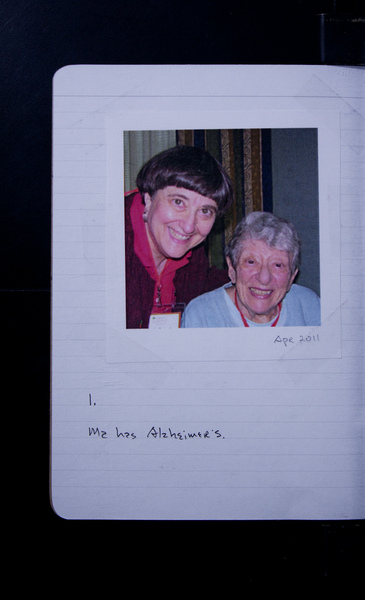 Apr 2011
1.
Ma has Alzheimer's.